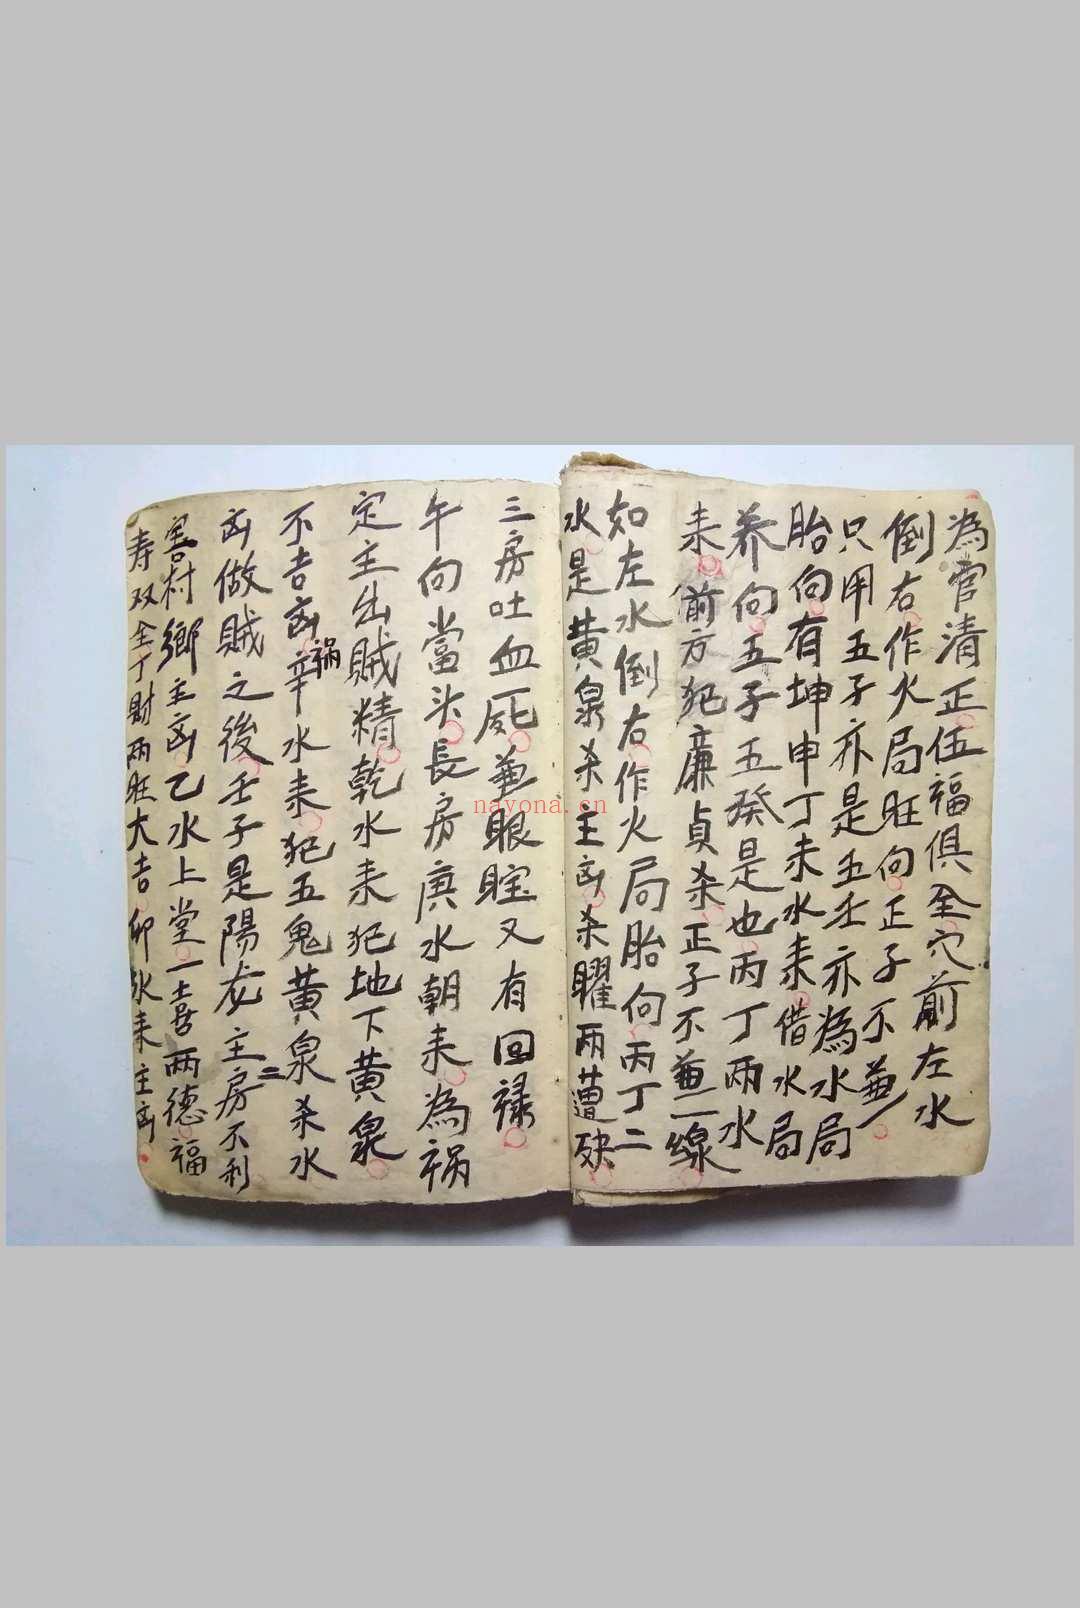 為官清正伍福俱全穴前左水
倒右作火局旺向正子不兼
只用五子亦是五壬亦為水局
胎向有坤申丁未水来借水局
养向五子五癸是也丙丁兩水
来前方犯廉貞杀正子不兼一線
如左水倒右作火局胎向丙丁二
水是黄泉杀主凶杀曜兩曹殃
三房吐血死兼眼瞎又有回禄
午向當头長房庚水朝来為祸
定主出賊精乾水来犯地下黄泉
不吉凶祸辛水来犯五鬼黄泉杀水
凶做賊之後壬子是陽龙主二房不利
害村鄉主凶乙水上堂一喜两德福
寿双全丁財兩旺大吉卯水来主凶
nayona.cn